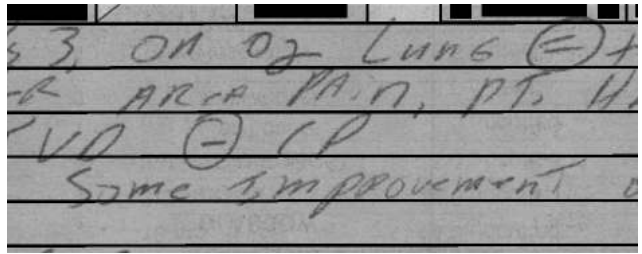 3, on O2 Lung ⊜
AREA PAin, PT. H
VD ⊖ CP
Some Improvement